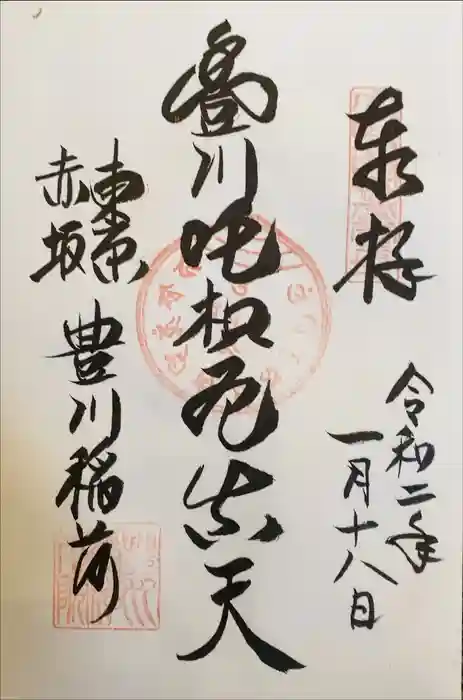 奉拝
令和二年
一月十八日
豊川吒枳尼真天
東京
赤坂
豊川稲荷